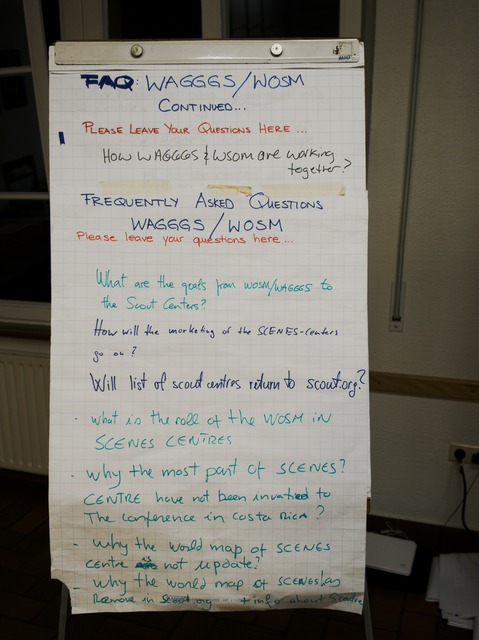 FAQ: WAGGGS/WOSM
CONTINUED...
PLEASE LEAVE YOUR QUESTIONS HERE ...
HOW WAGGGS & WSOM are working
together?
FREQUENTLY ASKED QUESTIONS
WAGGGS/WOSM
Please leave your questions here...
What are the goals from WOSM/WAGGGS to
the Scout Centers?
How will the marketing of the SCENES-centers
go on?
Will list of scout centres return to scout.org?
- what is the roll of the WOSM IN
SCENES CENTRES
- why the most part of SCENES?
CENTRE have not been invatied to
The conference in costa Rica?
- why the world map of SCENES
centre is not update?
- why the world map of SCENES
Remove in scout.org + info about